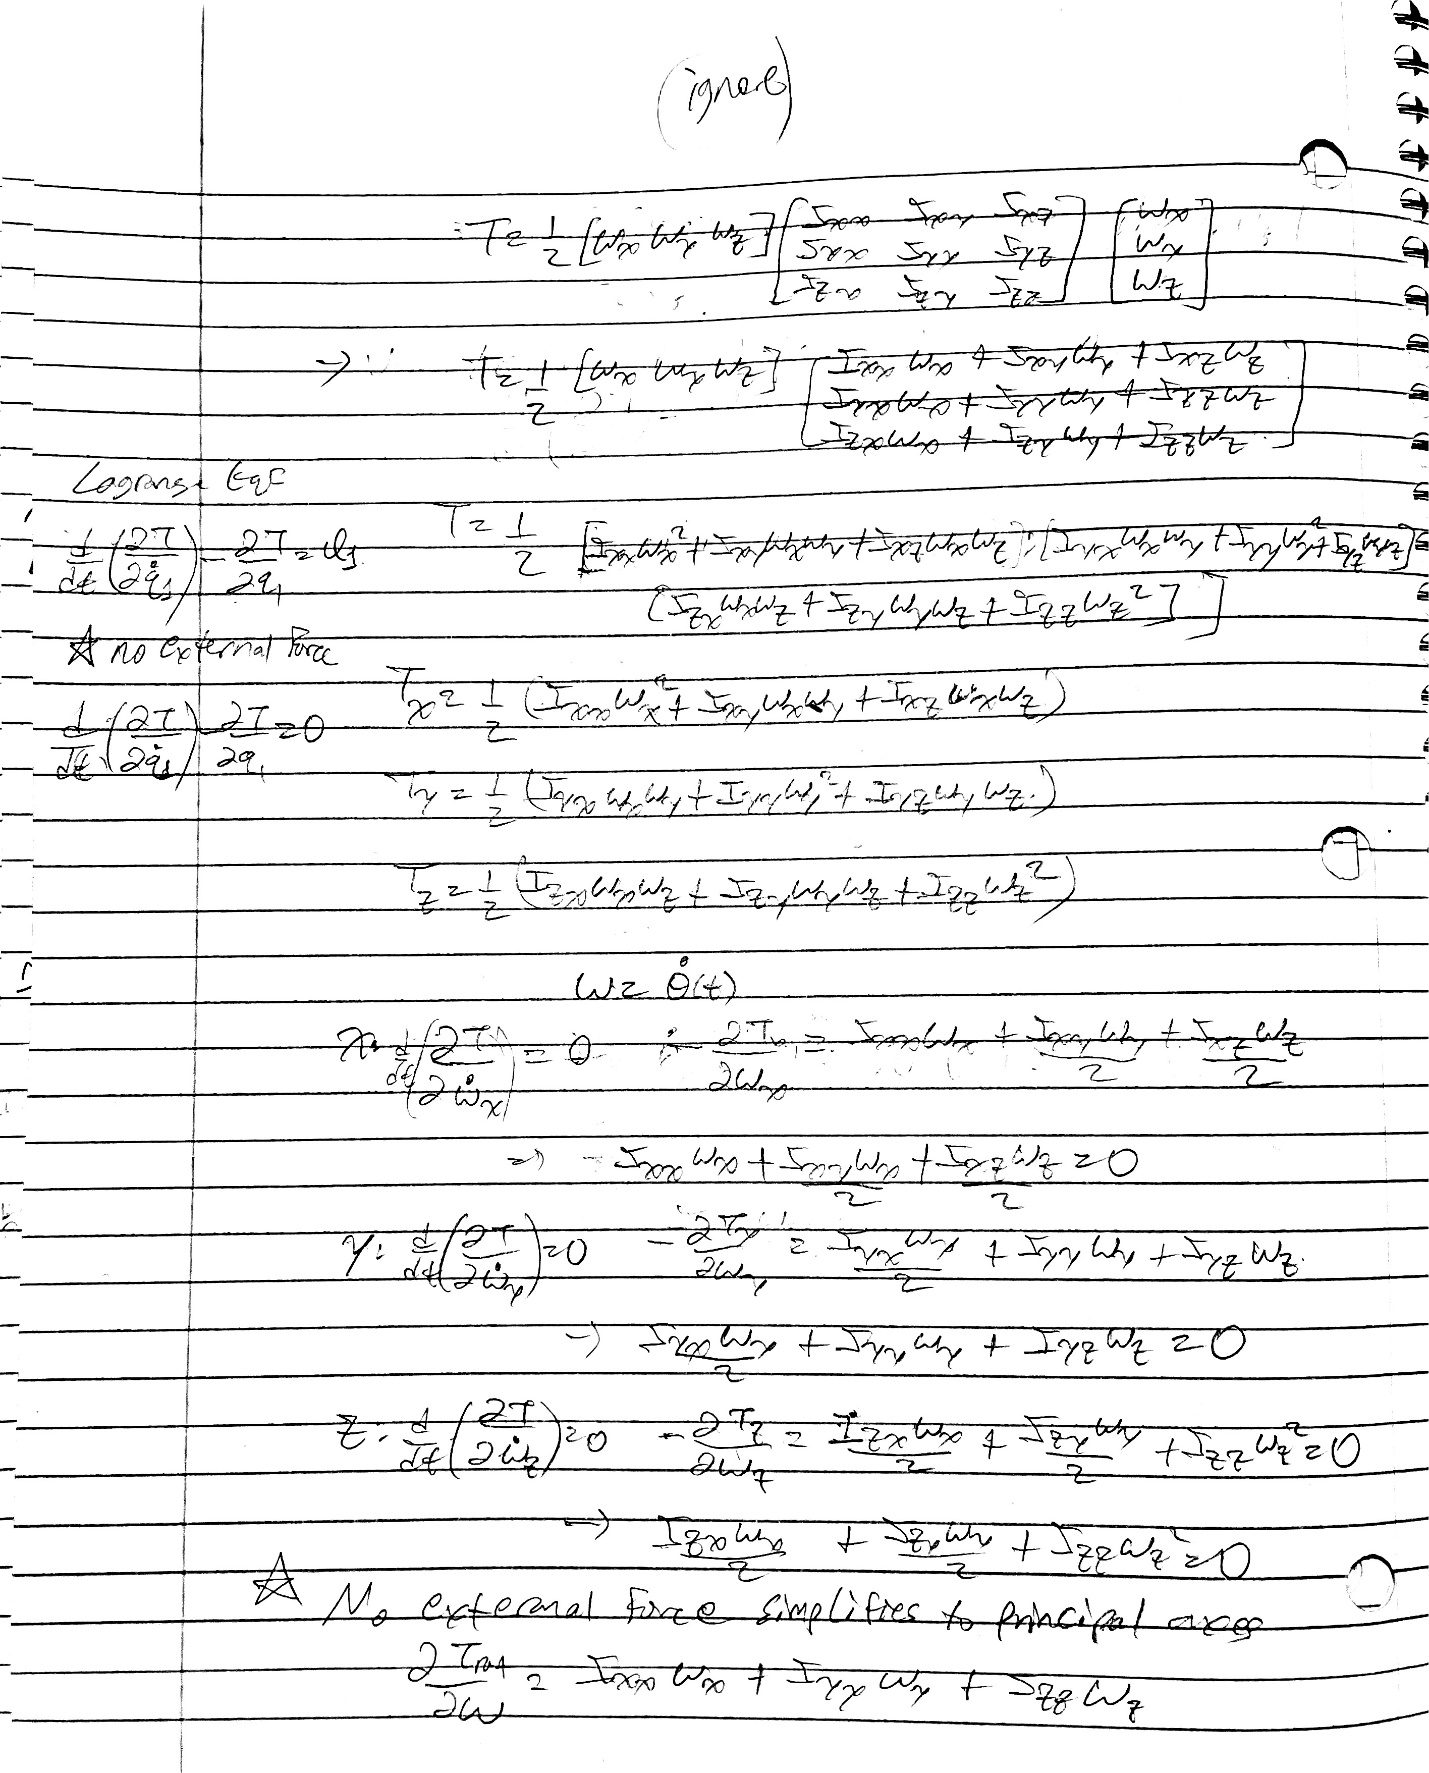 (ignore)
T = 1/2 [ωx ωy ωz] [Ixx Ixy Ixz; Iyx Iyy Iyz; Izx Izy Izz] [ωx; ωy; ωz]
→ T = 1/2 [ωx ωy ωz] [Ixx ωx + Ixy ωy + Ixz ωz; Iyx ωx + Iyy ωy + Iyz ωz; Izx ωx + Izy ωy + Izz ωz]
Lagrange Eqn
d/dt (∂T/∂q̇₁) - ∂T/∂q₁ = Q₁
T = 1/2 [[Ixx ωx² + Ixy ωx ωy + Ixz ωx ωz] + [Iyx ωx ωy + Iyy ωy² + Iyz ωy ωz]
[Izx ωx ωz + Izy ωy ωz + Izz ωz²]]
☆ no external force
d/dt (∂T/∂q̇₁) - ∂T/∂q₁ = 0
Tx = 1/2 (Ixx ωx² + Ixy ωx ωy + Ixz ωx ωz)
Ty = 1/2 (Iyx ωx ωy + Iyy ωy² + Iyz ωy ωz)
Tz = 1/2 (Izx ωx ωz + Izy ωy ωz + Izz ωz²)
ω = θ̇(t)
x: d/dt (∂T/∂ω̇x) = 0 - ∂Tx/∂ωx = Ixx ωx + Ixy ωy/2 + Ixz ωz/2
⇒ - Ixx ωx + Ixy ωx/2 + Ixz ωz/2 = 0
y: d/dt (∂T/∂ω̇y) = 0 - ∂Ty/∂ωy = Iyx ωy/2 + Iyy ωy + Iyz ωz
→ Iyx ωy/2 + Iyy ωy + Iyz ωz = 0
z: d/dt (∂T/∂ω̇z) = 0 - ∂Tz/∂ωz = Izx ωx/2 + Izy ωy/2 + Izz ωz² = 0
→ Izx ωx/2 + Izy ωy/2 + Izz ωz² = 0
☆ No external force simplifies to principal axes
∂Trot/∂ω = Ixx ωx + Iyy ωy + Izz ωz